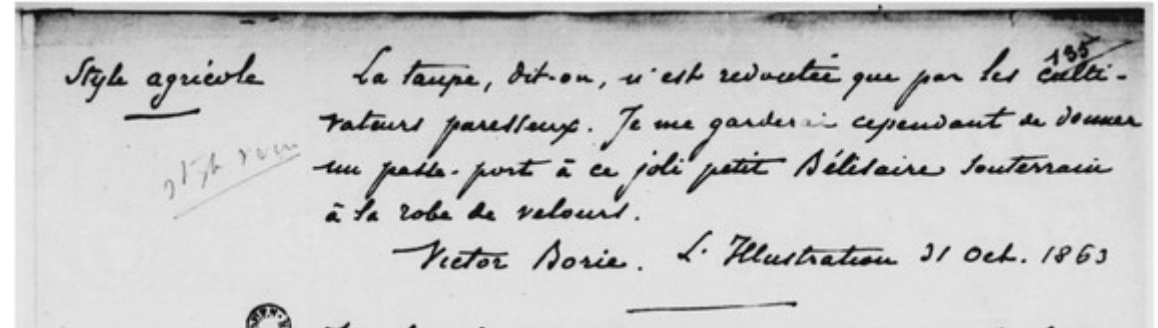 135
Style agricole
La taupe, dit-on, n'est redoutée que par les culti-
vateurs paresseux. Je me garderai cependant de donner
un passe-port à ce joli petit Bélisaire souterrain
à la robe de velours.
Victor Borie. L'Illustration 31 Oct. 1863